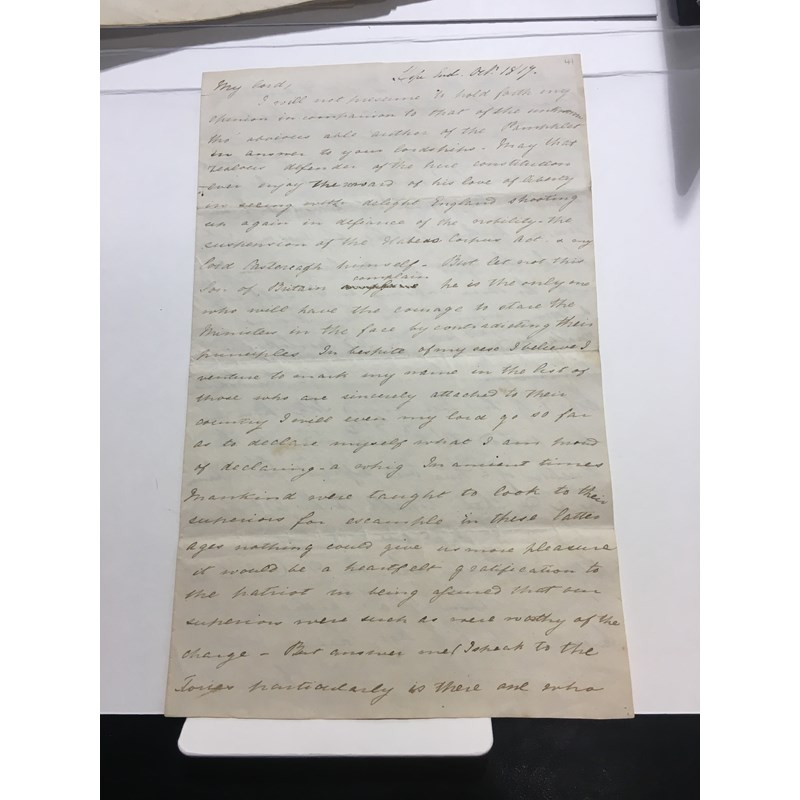 41
My Lord, Oct. 1819.
I will not presume to hold forth my
opinion in comparison to that of the unknown
tho' obvious able author of the Pamphlet
in answer to your lordships. May that
zealous defender of the true constitution
ever enjoy the reward of his love of liberty
in seeing with delight England shooting
up again in defiance of the nobility - the
suspension of the Habeas Corpus Act, & my
lord Castlereagh himself - But let not this
complain
Son of Britain he is the only one
who will have the courage to stare the
Ministers in the face by contradicting their
principles In despite of my sex I believe I
venture to mark my name in the list of
those who are sincerely attached to their
country I will even my lord go so far
as to declare myself what I am proud
of declaring - a whig In ancient times
Mankind were taught to look to their
superiors for example in these latter
ages nothing could give us more pleasure
it would be a heartfelt gratification to
the patriot in being assured that our
superiors were such as were worthy of the
charge - But answer me (I speak to the
Tories particularly is there one who